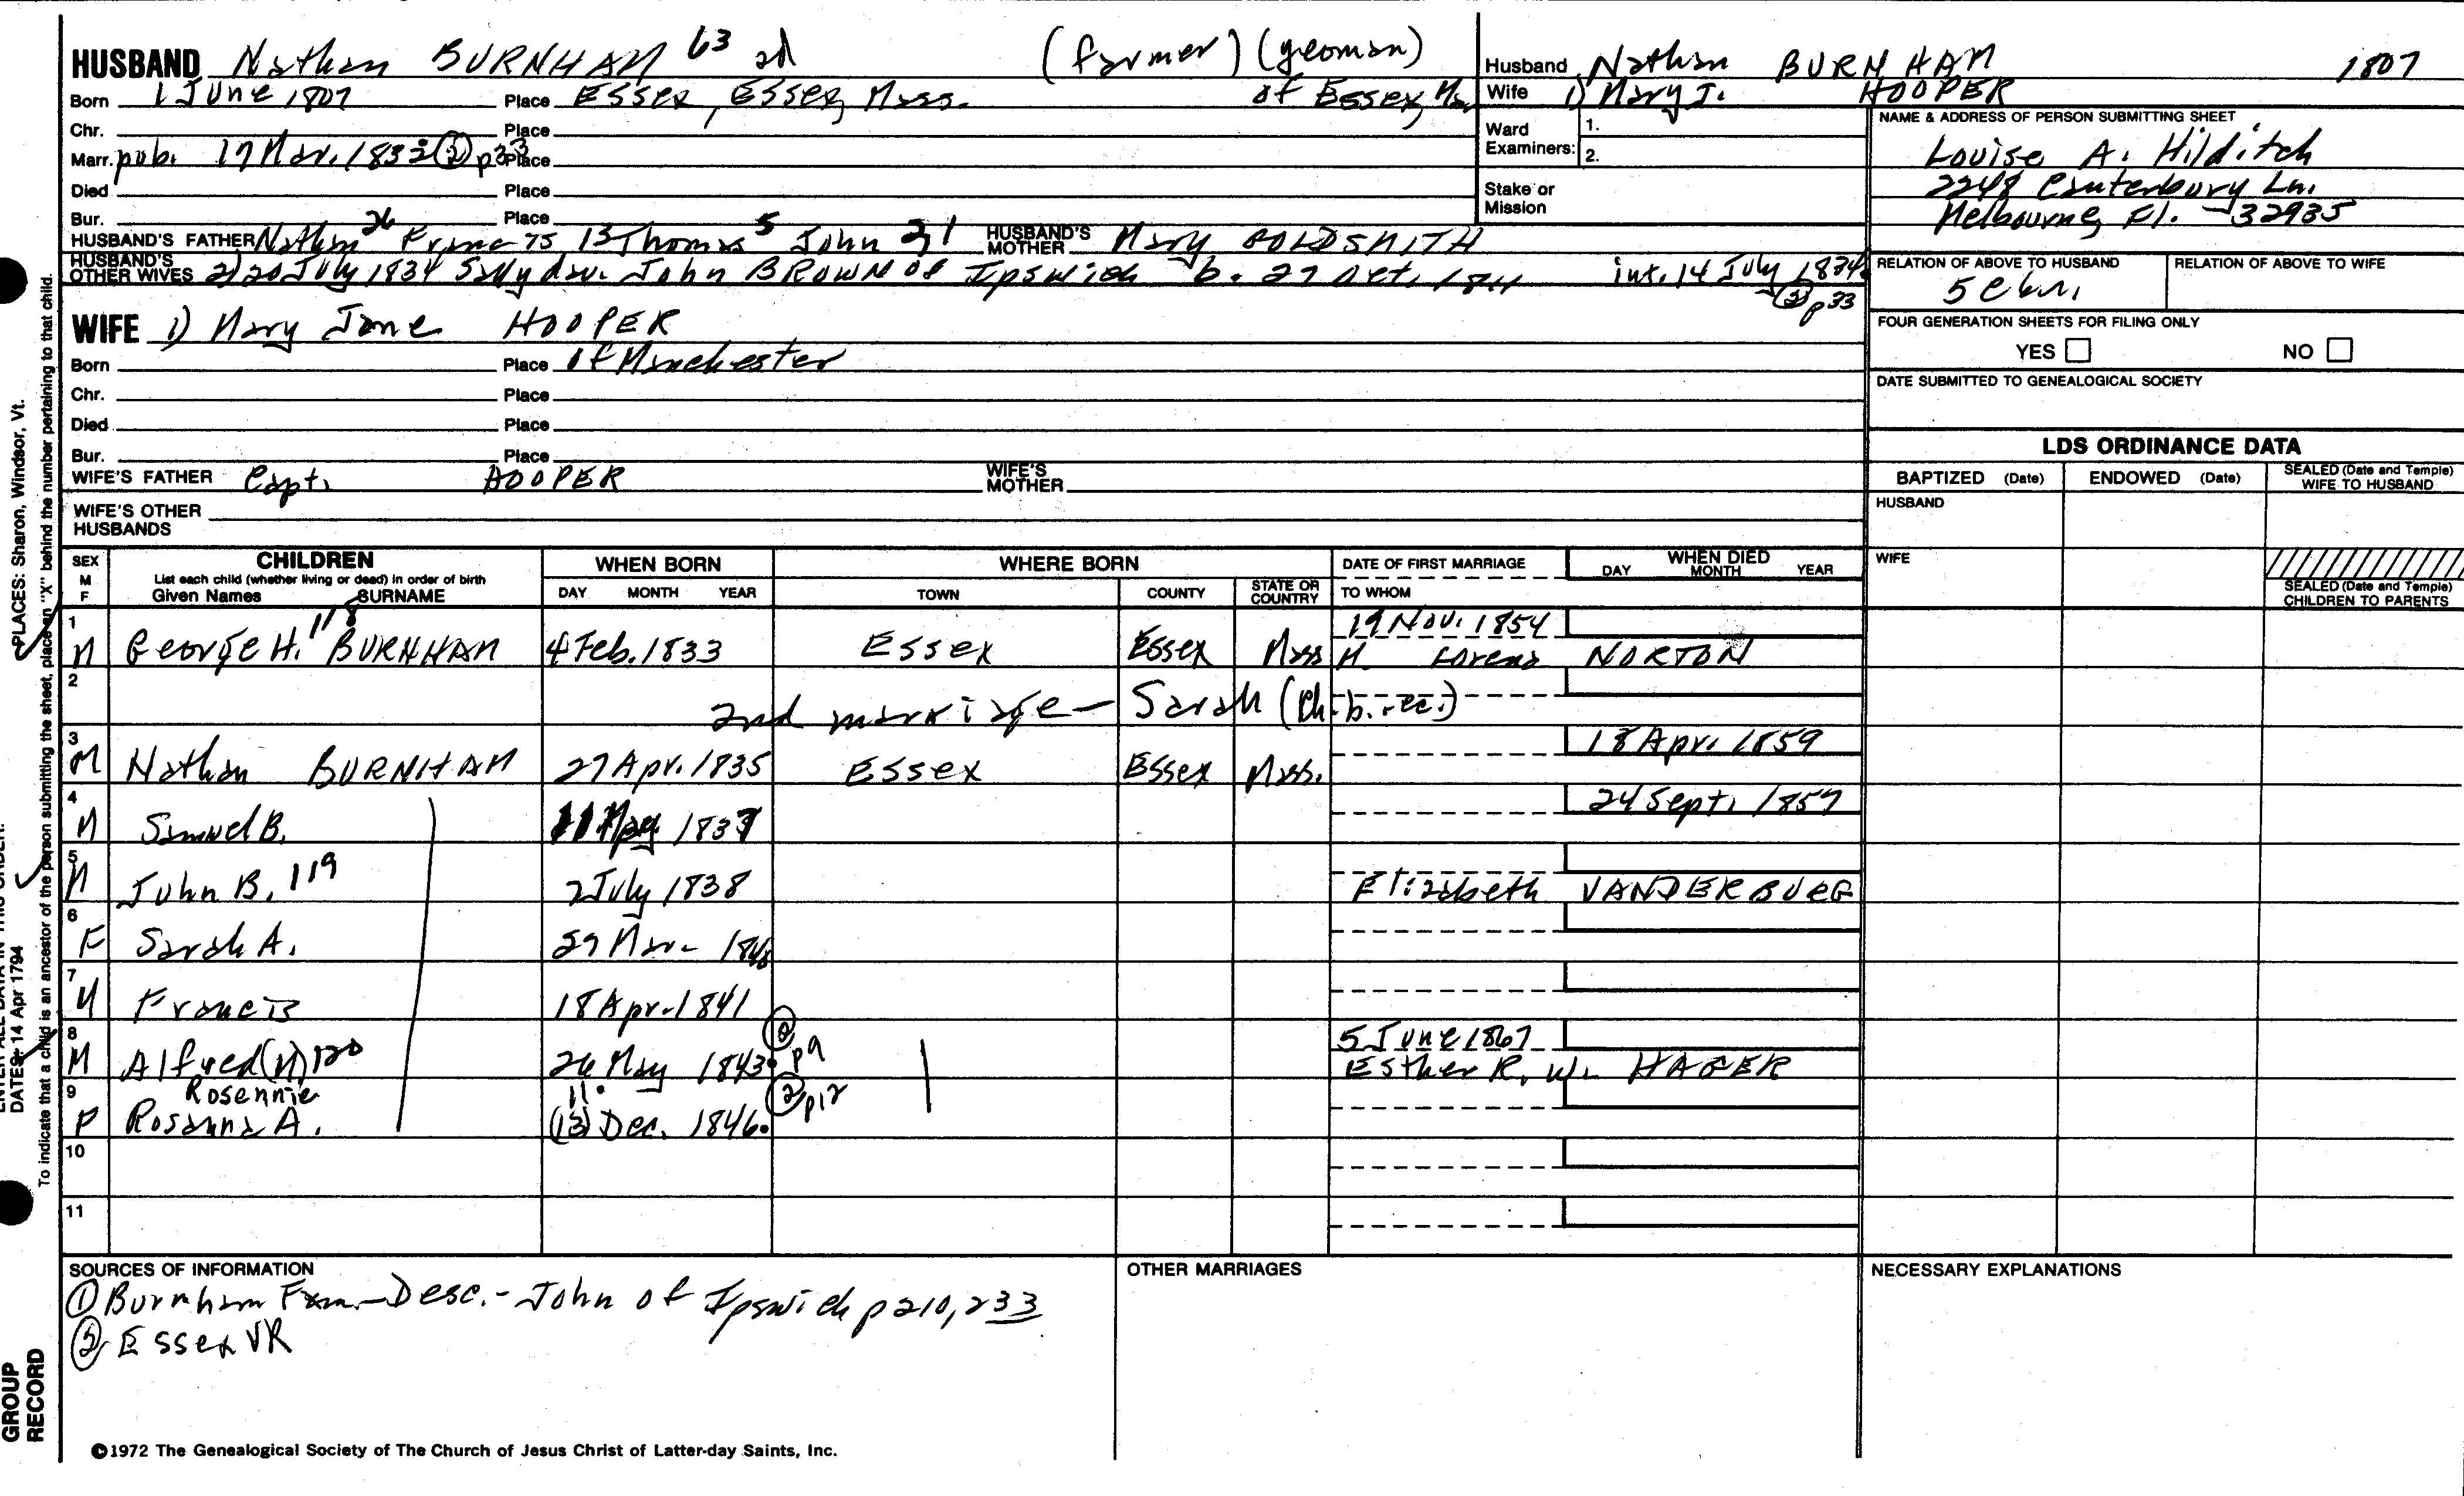 HUSBAND Nathan BURNHAM 63 2d (farmer) (yeoman)
Born 1 June 1807 Place Essex, Essex, Mass. of Essex, Ma
Chr. Place
Marr. pub. 17 Mar. 1832 (2) p33 Place
Died Place
Bur. Place
HUSBAND'S FATHER Nathan 26 Francis 13 Thomas 5 John 3, 1 HUSBAND'S MOTHER Mary GOLDSMITH
HUSBAND'S OTHER WIVES 2) 20 July 1834 Sally dau. John BROWN of Ipswich b. 27 Oct. int. 14 July 1834
(2) p33
Husband Nathan BURNHAM 1807
Wife 1) Mary J. HOOPER
Ward Examiners: 1.
2.
Stake or Mission
NAME & ADDRESS OF PERSON SUBMITTING SHEET
Louise A. Hilditch
2248 Canterbury Ln.
Melbourne, Fl. - 32935
RELATION OF ABOVE TO HUSBAND RELATION OF ABOVE TO WIFE
FOUR GENERATION SHEETS FOR FILING ONLY
YES NO
DATE SUBMITTED TO GENEALOGICAL SOCIETY
WIFE 1) Mary Jane HOOPER
Born Place of Manchester
Chr. Place
Died Place
Bur. Place
WIFE'S FATHER Capt. HOOPER WIFE'S MOTHER
WIFE'S OTHER HUSBANDS
LDS ORDINANCE DATA
BAPTIZED (Date) ENDOWED (Date) SEALED (Date and Temple) WIFE TO HUSBAND
HUSBAND
WIFE
SEALED (Date and Temple) CHILDREN TO PARENTS
SEX M F CHILDREN
List each child (whether living or dead) in order of birth
Given Names SURNAME
WHEN BORN
DAY MONTH YEAR
WHERE BORN
TOWN COUNTY STATE OR COUNTRY
DATE OF FIRST MARRIAGE
TO WHOM
WHEN DIED
DAY MONTH YEAR
1 M George H. 118 BURNHAM 4 Feb. 1833 Essex Essex Mass 19 Nov. 1854
H. Lorena NORTON
2 2nd marriage - Sarah (Ch. b. rec.)
3 M Nathan BURNHAM 27 Apr. 1835 Essex Essex Mass. 18 Apr. 1859
4 M Samuel B. 11 May 1837 24 Sept. 1857
5 M John B. 119 2 July 1838 Elizabeth VANDERBURG
6 F Sarah A. 29 Mar. 1840
7 M Francis 18 Apr. 1841
8 M Alfred (M) 120 26 May 1843 (2) p9 5 June 1867
Esther R. W. HAGER
9 F Rosennie
Rosanna A. 11. (13) Dec. 1846 (2) p12
10
11
SOURCES OF INFORMATION
(1) Burnham Fam. - Desc. - John of Ipswich p 210, 233
(2) Essex VR
OTHER MARRIAGES
NECESSARY EXPLANATIONS
©1972 The Genealogical Society of The Church of Jesus Christ of Latter-day Saints, Inc.
PLACES: Sharon, Windsor, Vt.
To indicate that a child is an ancestor of the person submitting the sheet, place an "X" behind the number pertaining to that child.
DATES: 14 Apr 1794
GROUP RECORD